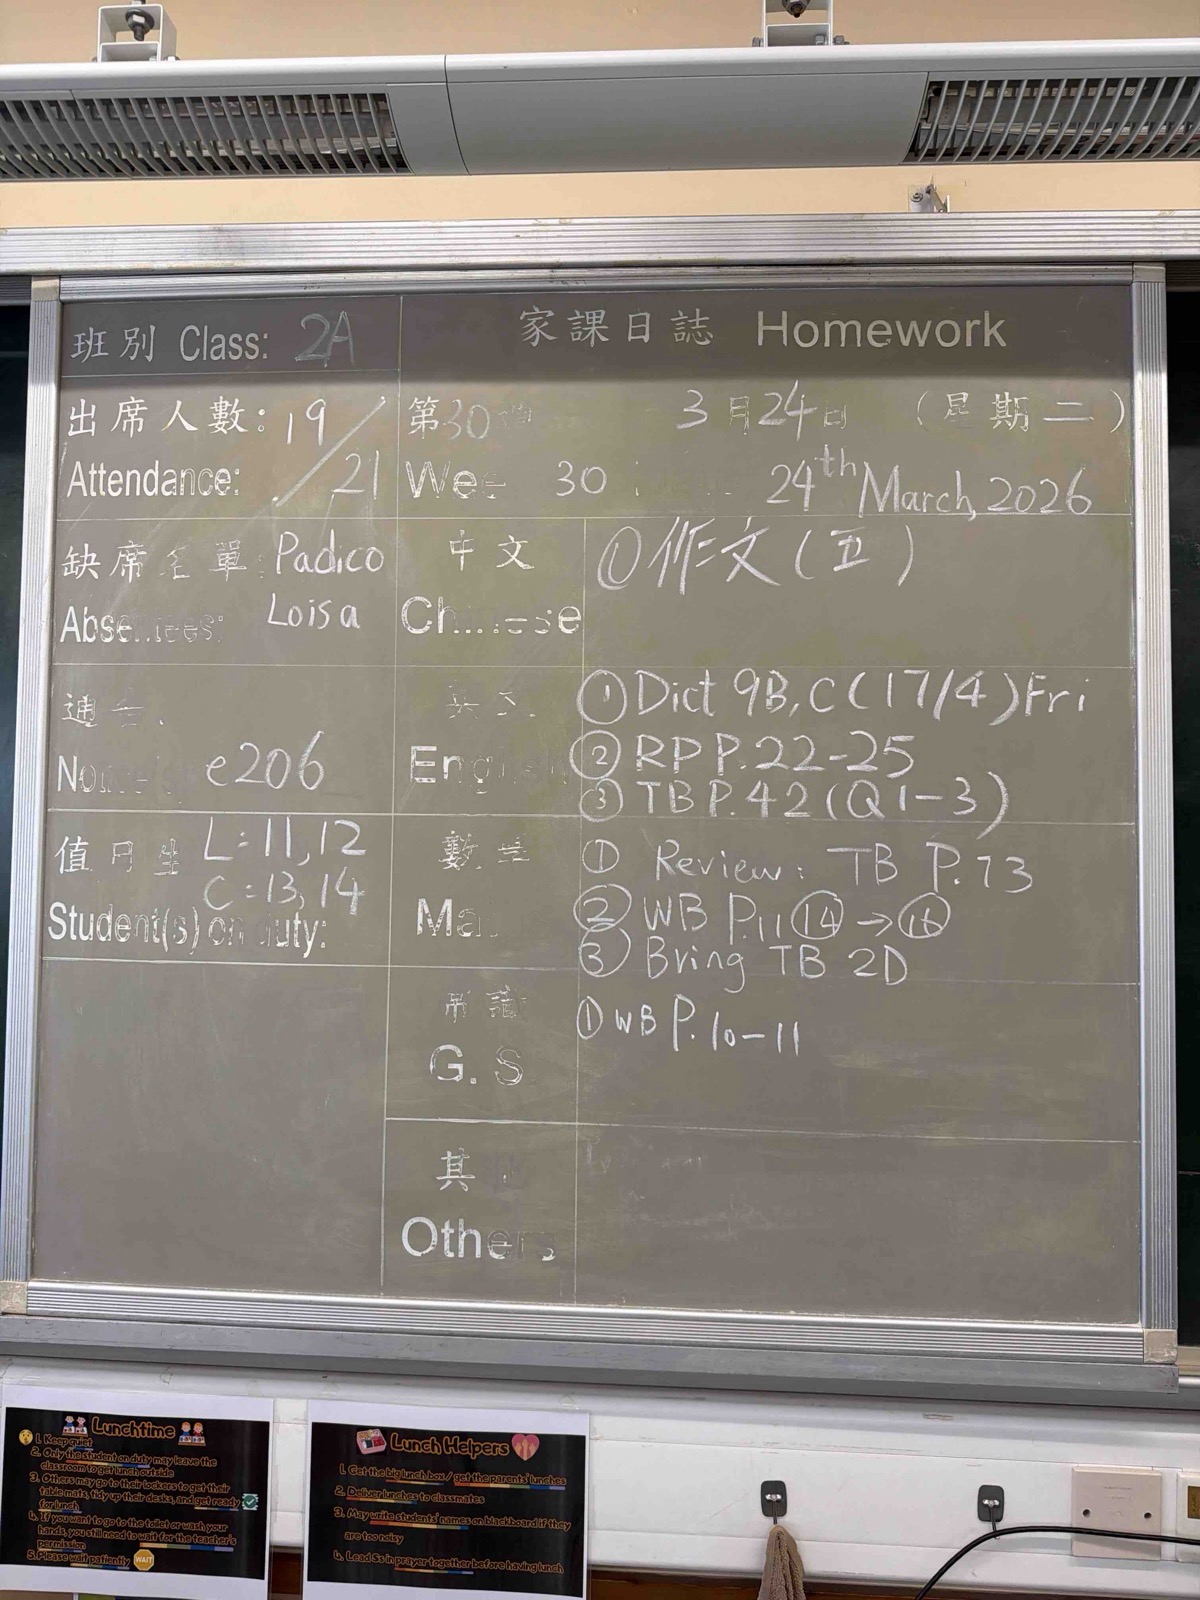 班別 Class: 2A
家課日誌 Homework
出席人數: 19 / 21
Attendance:
第30
3月24日 (星期二)
30
24th March, 2026
缺席名單: Padico
Loisa
中文
① 作文(五)
e206
① Dict 9B, C (17/4) Fri
② RP P.22-25
③ TB P.42 (Q1-3)
值日生 L=11, 12
C=13, 14
Student(s) on duty:
數學
① Review: TB P.73
② WB P.11 ⑭ → ⑯
③ Bring TB 2D
常識
G.S
① WB P.10-11
其
Others
Lunchtime
1. Keep quiet
2. Only the student on duty may leave the
classroom to get lunch outside
3. Others may go to their lockers to get their
table mats, tidy up their desks, and get ready
for lunch
4. If you want to go to the toilet or wash your
hands, you still need to wait for the teacher's
permission
5. Please wait patiently WAIT
Lunch Helpers
1. Get the big lunch box / get the parents' lunches
2. Deliver lunches to classmates
3. May write students' names on blackboard if they
are too noisy
4. Lead Ss in prayer together before having lunch